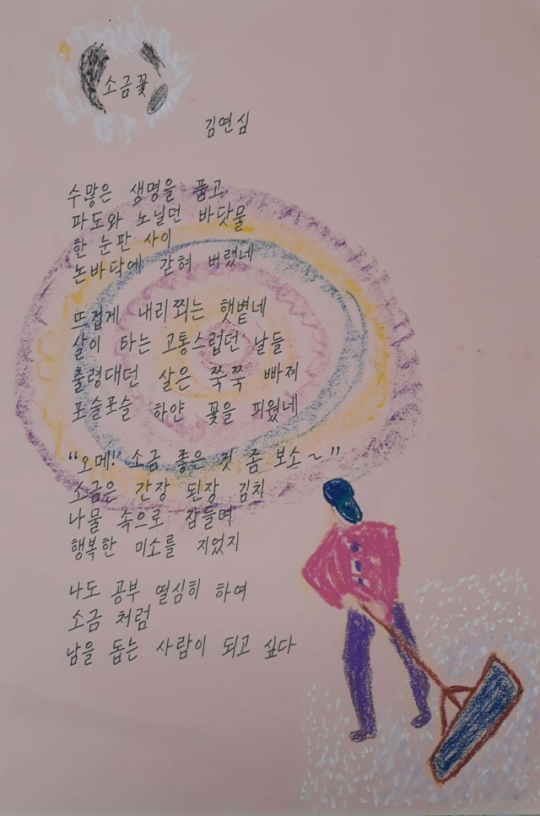 소금꽃
김연심
수많은 생명을 품고
파도와 노닐던 바닷물
한 눈판 사이
논바닥에 갇혀 버렸네
뜨겁게 내리쬐는 햇볕네
살이 타는 고통스럽던 날들
출렁대던 살은 쭉쭉 빠져
포슬포슬 하얀 꽃을 피웠네
"오메! 소금 좋은 것 좀 보소~"
소금은 간장 된장 김치
나물 속으로 잠들며
행복한 미소를 지었지
나도 공부 열심히 하여
소금 처럼
남을 돕는 사람이 되고 싶다